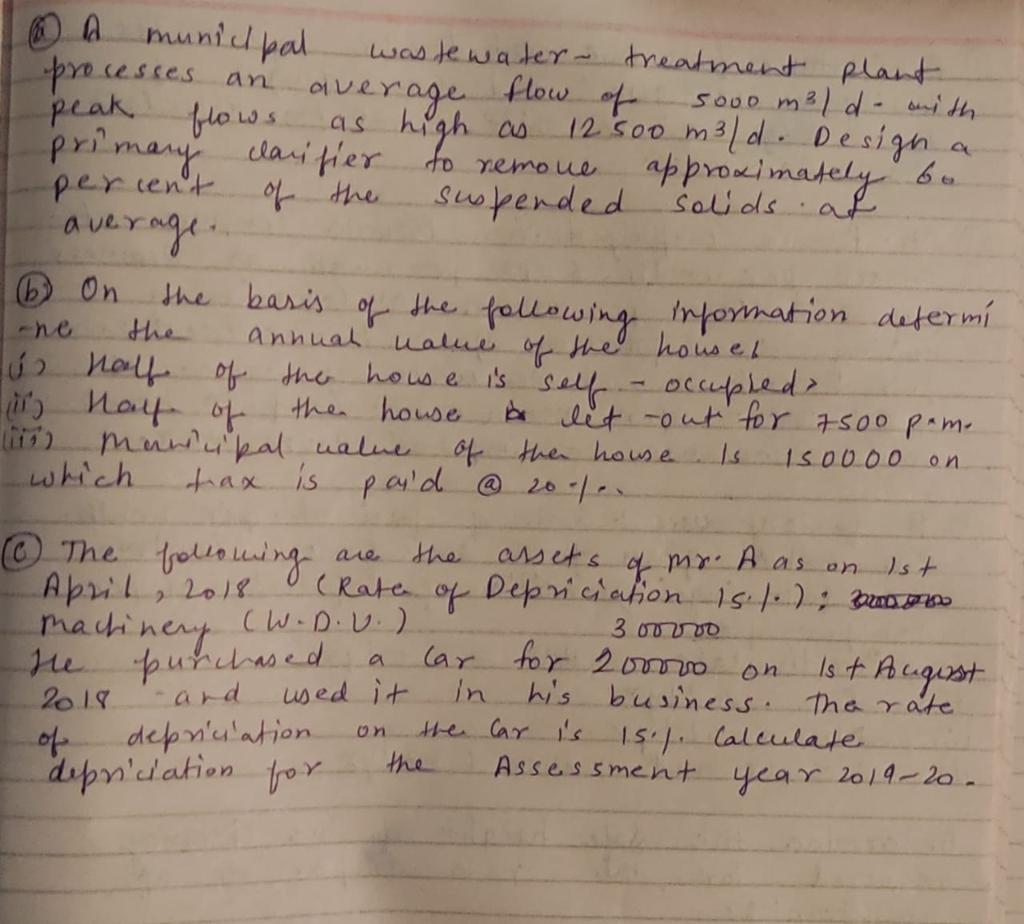 (a) A municipal wastewater- treatment plant
processes an average flow of 5000 m3/d - with
peak flows as high as 12500 m3/d. Design a
primary clarifier to remove approximately 60
percent of the suspended solids. at
average.
(b) On the basis of the following information determi
-ne the annual value of the house:
(i) Half of the house is self - occupied,
(ii) Half of the house let -out for 7500 p.m.
(iii) Municipal value of the house is 150000 on
which tax is paid @ 20%.
(c) The following are the assets of Mr. A as on 1st
April, 2018 (Rate of Depriciation 15%):
Machinery (W.D.V.) 300000
He purchased a Car for 200000 on 1st August
2018 and used it in his business. The rate
of depriciation on the Car is 15%. Calculate
depriciation for the Assessment year 2019-20.